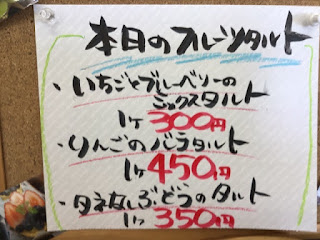 本日のフルーツタルト
・いちごとブルーベリーの
ミックスタルト
1ケ 300円
・りんごのバラタルト
1ケ 450円
・タネなしぶどうのタルト
1ケ 350円